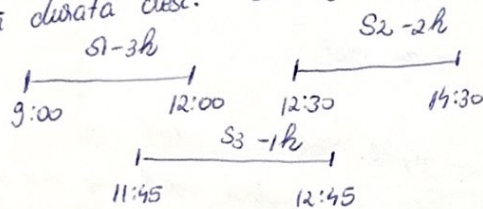 durata desc.
S1-3h
S2-2h
9:00 12:00 12:30 14:30
S3-1h
11:45 12:45